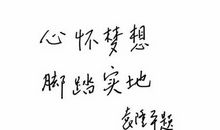 心怀梦想
脚踏实地
袁隆平题